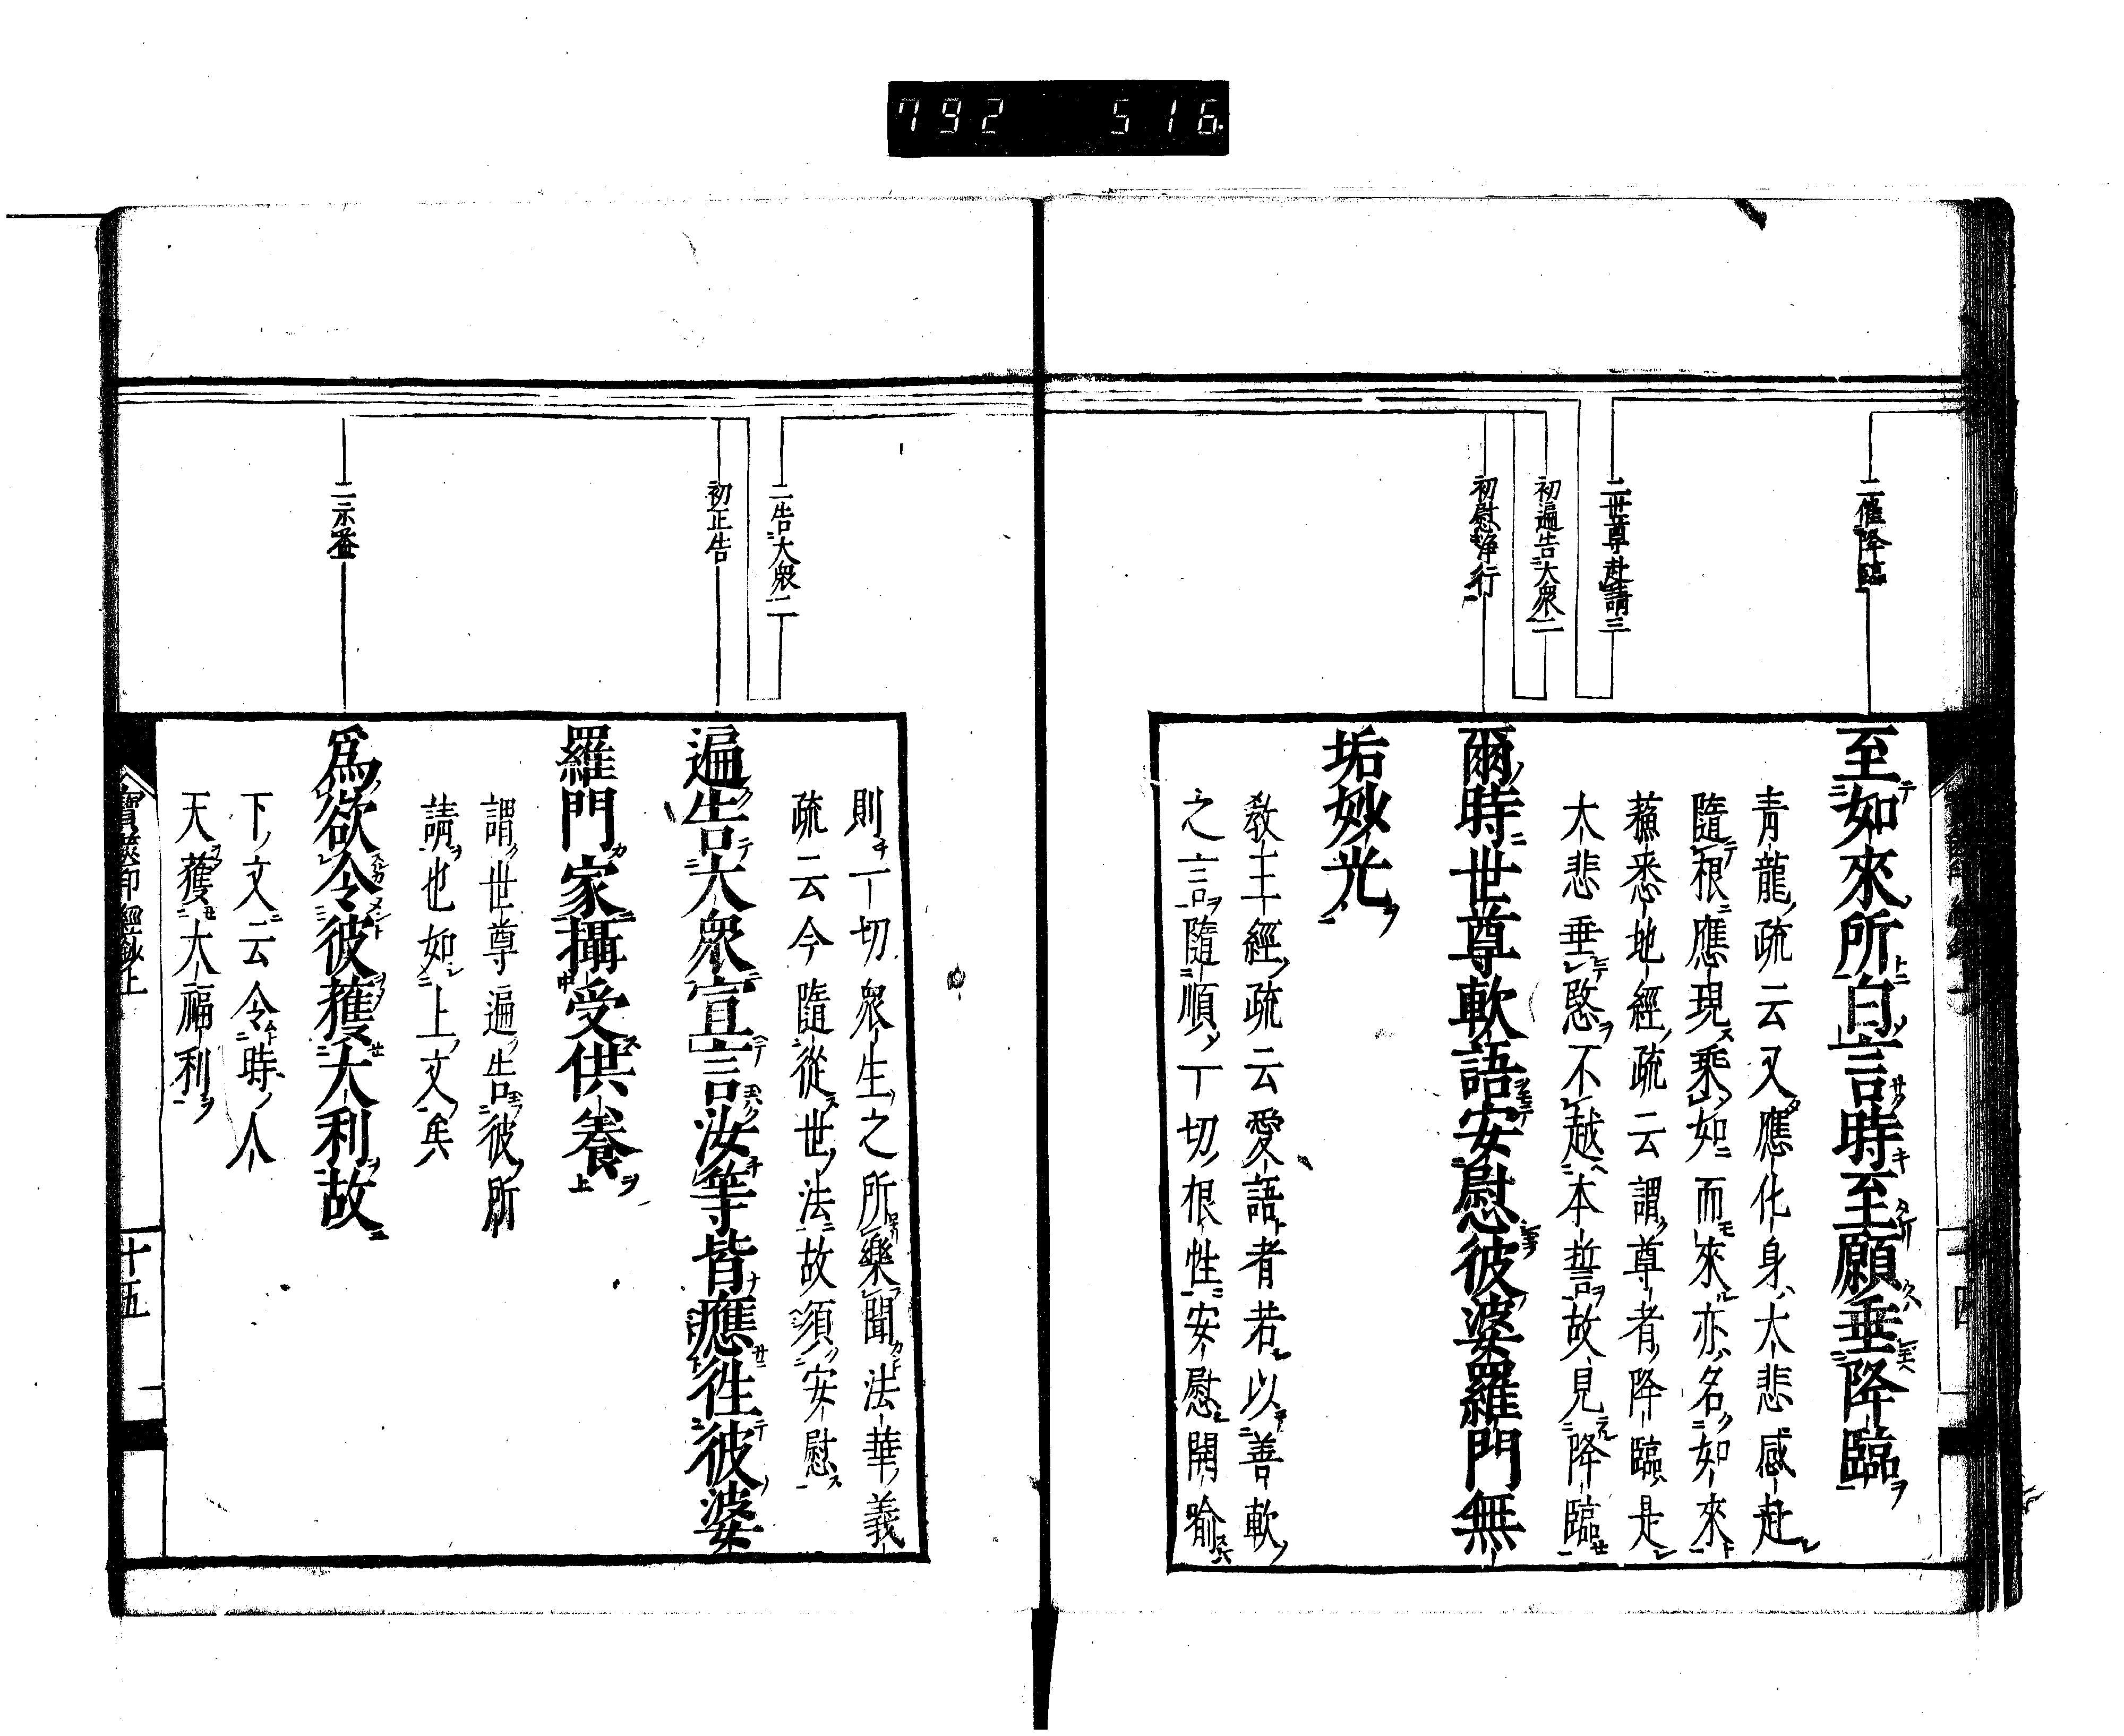 792 516
二催降臨
二世尊赴請三
初遍告大衆二
初慰淨行
至如來所白言時至願垂降臨
青龍疏云又應化身大悲感赴
隨根應現乘如而來亦名如來
蘇悉地經疏云謂尊者降臨是
大悲垂愍不越本誓故見降臨
爾時世尊軟語安慰彼婆羅門無
垢妙光
教王經疏云愛語者若以善軟
之言隨順一切根性安慰開喻
二告大衆二
初正告
二示益
則一切衆生之所樂聞法華義
疏云今隨從世法故須安慰
遍告大衆宣言汝等皆應往彼婆
羅門家攝受供養
謂世尊遍告彼所
請也如上文矣
爲欲令彼獲大利故
下文云令時人
天獲大福利
寶篋印經鈔上
十五